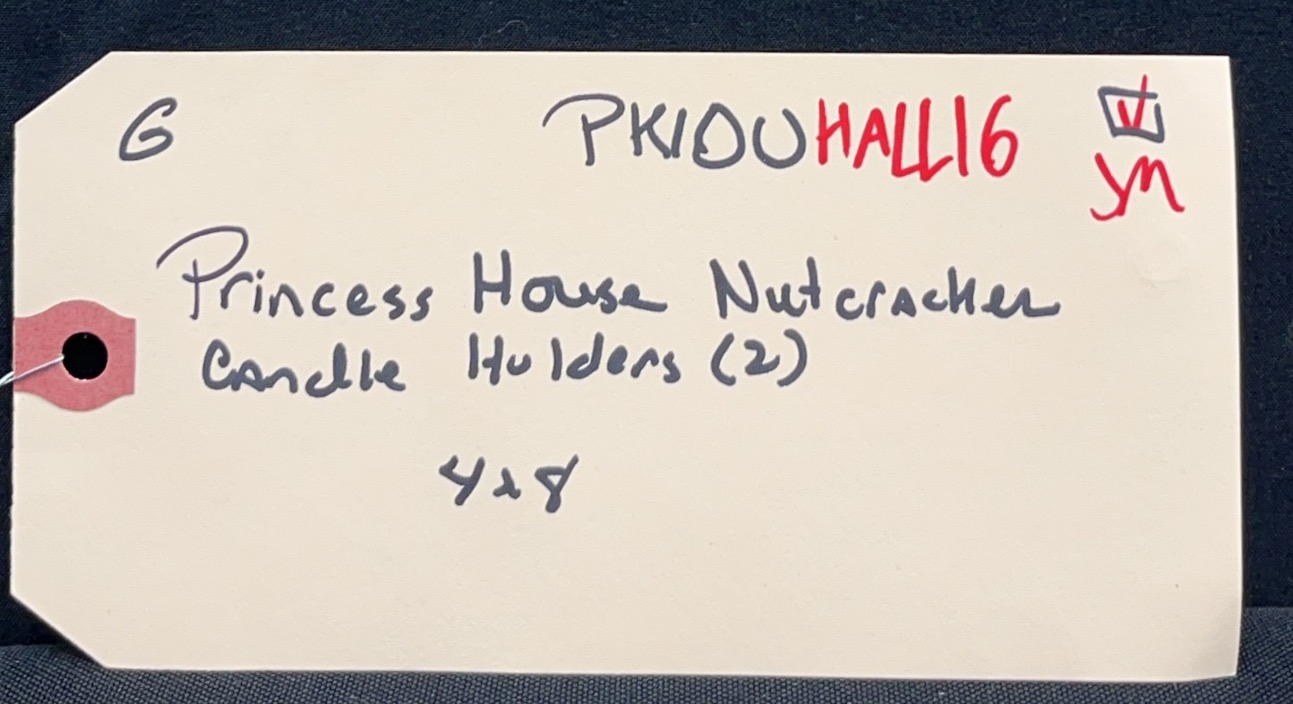 G PKIDUHALL16
YM
Princess House Nutcracker
Candle Holders (2)
4x8